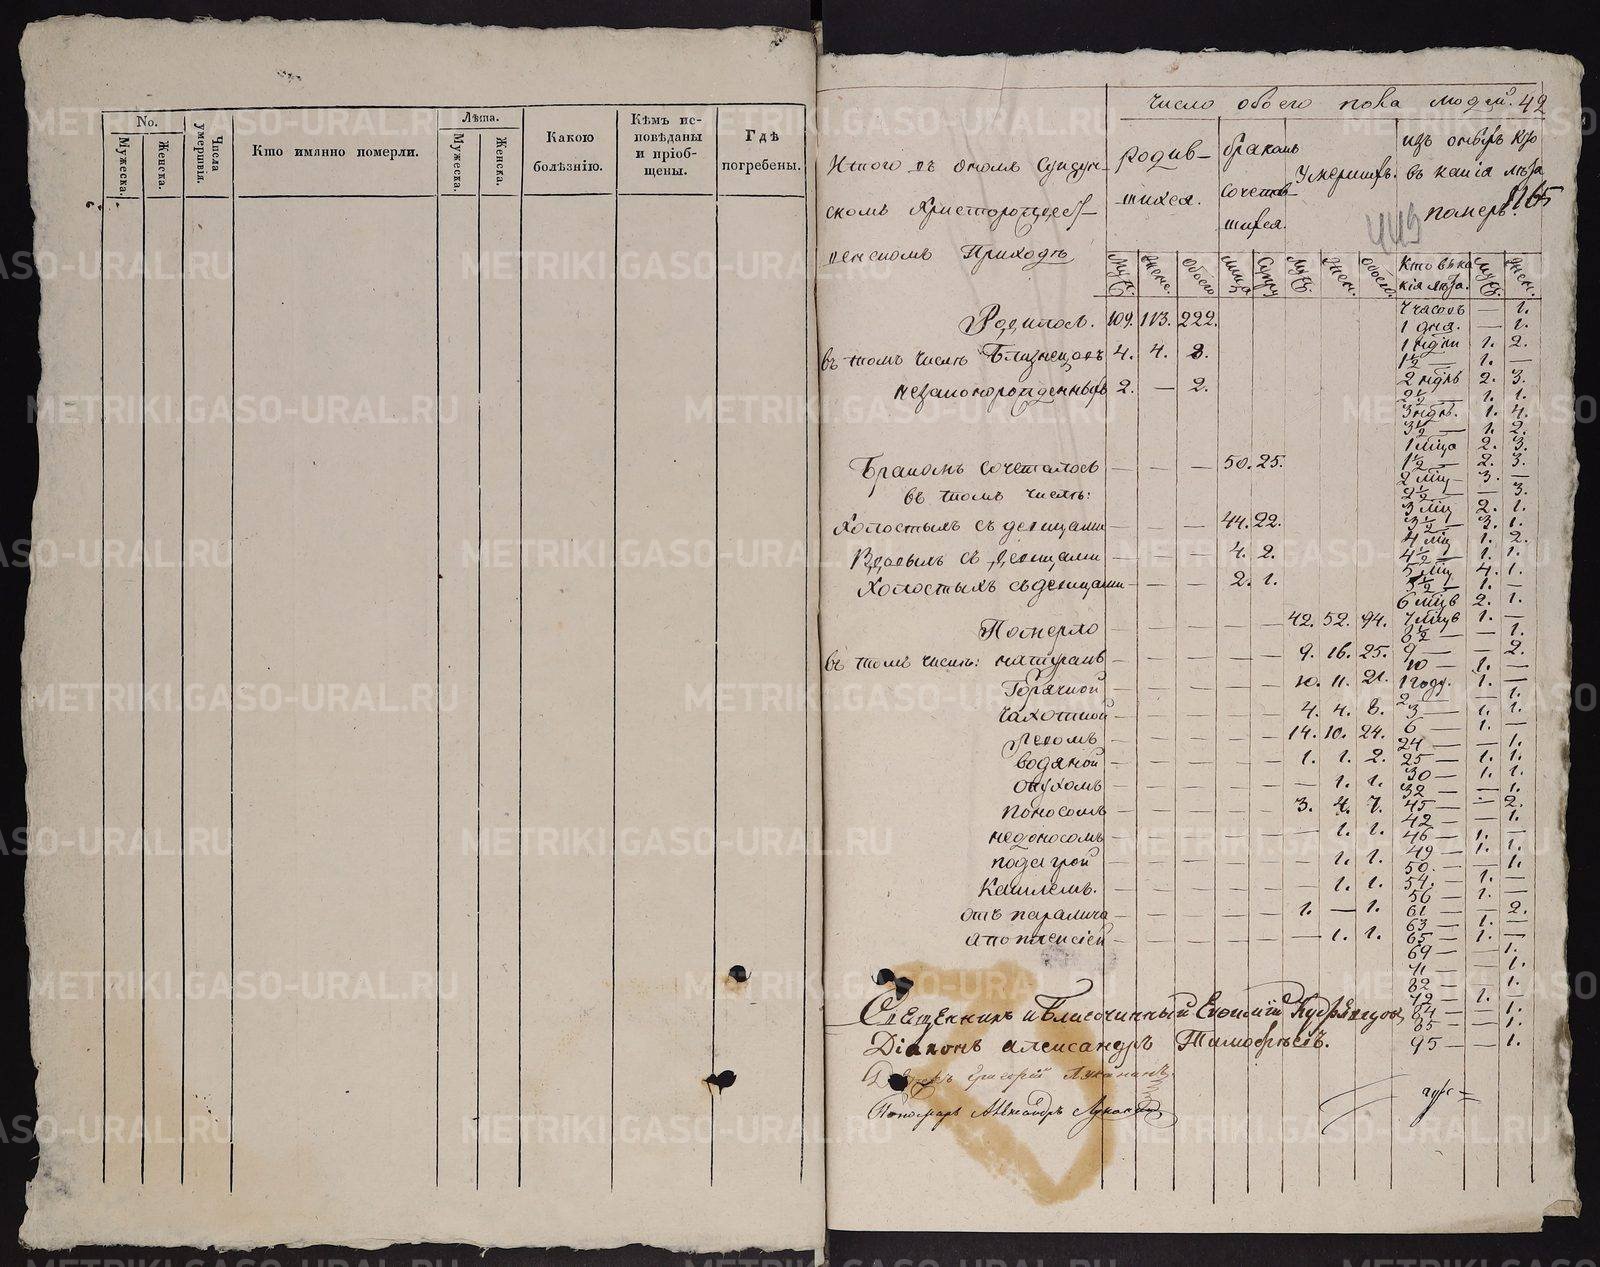 No.
Мужеска.
Женска.
Числа умершвія.
Кто имянно померли.
Лѣта.
Мужеска.
Женска.
Какою
болѣзнію.
Кѣмъ ис-
повѣданы
и пріоб-
щены.
Гдѣ
погребены.
Число обоего пола людей. 42
Итого въ ономъ
скомъ Христорождест-
венскомъ Приходѣ
Родив-
шихся.
бракомъ
сочетав-
шихся.
Умершихъ.
изъ оныхъ кто
въ какія лѣта
померъ.
1165
449
Муж. Женс. Обоего Лица Супру Муж. Жен. Обоего.
Кто въ ка
кія лѣта. Муж. Жен.
Родилось. 109. 113. 222.
въ томъ числѣ Близнецовъ 4. 4. 8.
незаконорожденныхъ 2. — 2.
Бракомъ сочеталось — — — 50. 25.
въ томъ числѣ:
Холостыхъ съ девицами — — — 44. 22.
Вдовыхъ съ девицами — — — 4. 2.
Холостыхъ съ девицами — — — 2. 1.
Померло — — — — — 42. 52. 94.
въ томъ числѣ: натурать — — — — — 9. 16. 25.
Горячкой — — — — — 10. 11. 21.
Чахоткой — — — — — 4. 4. 8.
Реломъ — — — — — 14. 10. 24.
водяной — — — — — 1. 1. 2.
опухомъ — — — — — — 1. 1.
поносомъ — — — — — 3. 4. 7.
недоносомъ — — — — — — 1. 1.
подагрой — — — — — — 1. 1.
Кашлемъ. — — — — — — 1. 1.
отъ паралича — — — — — 1. — 1.
апоплексіей — — — — — — 1. 1.
7 часовъ — 1.
1 дня. — 1.
1 нѣдли 1. 2.
1½ — 1. —
2 нѣдлъ 2. 3.
2½ — 1. 1.
3 нѣдлъ. 1. 4.
3½ — 1. 2.
1 мѣца 2. 3.
1½ — 2. 3.
2 мѣц 3. —
2½ — — 3.
3 мѣц 2. 1.
3½ — 3. 1.
4 мѣц 1. 2.
4½ — 1. 1.
5 мѣц 4. 1.
5½ — 1. —
6 мѣцв 2. 1.
7 мѣцв 1. —
8½ — — 1.
9 — — 2.
10 — 1. —
1 году. 1. —
2 — — 1.
3 — 1. 1.
6 — 1. —
24 — — 1.
25 — 1. 1.
30 — 1. 1.
32 — — 1.
45 — — 2.
42 — — 1.
46 — 1. —
49 — 1. 1.
50. — — 1.
54. — 1. —
56 — 1. —
61 — — 2.
63 — 1. —
65 — 1. —
69 — — 1.
71 — — 1.
82 — — 1.
72 — 1. —
84 — — 1.
85 — — 1.
95 — — 1.
Священникъ и Благочинный Евфимій Кудрявцовъ
Діаконъ Александръ Тимофѣевъ.
Григорій Луканинъ
Пономарь Александръ Луканинъ